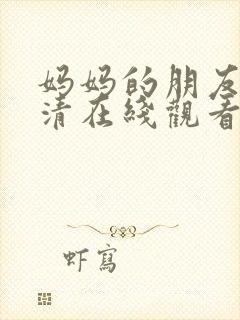 妈妈的朋友
清在线觀看
虾寫